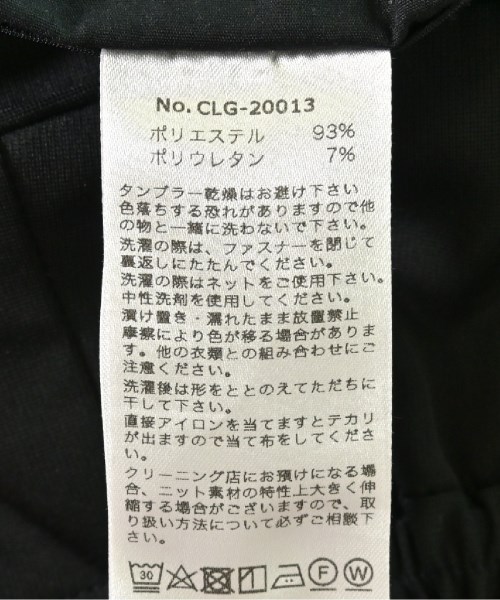 No. CLG-20013
ポリエステル 93%
ポリウレタン 7%
タンブラー乾燥はお避け下さい
色落ちする恐れがありますので他
の物と一緒に洗わないで下さい。
洗濯の際は、ファスナーを閉じて
裏返しにたたんでください。
洗濯の際はネットをご使用下さい。
中性洗剤を使用してください。
漬け置き・濡れたまま放置禁止
摩擦により色が移る場合がありま
す。他の衣類との組み合わせにご
注意ください。
洗濯後は形をととのえてただちに
干して下さい。
直接アイロンを当てますとテカリ
が出ますので当て布をしてくださ
い。
クリーニング店にお預けになる場
合、ニット素材の特性上大きく伸
縮する場合がございますので、取
り扱い方法について必ずご相談下
さい。
30 F W